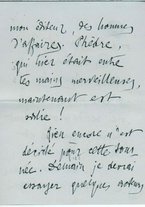 mon éditeur, des hommes
d'affaires. Phèdre,
qui hier était entre
tes mains merveilleuses,
maintenant est
votre !
Rien encore n'est
décidé pour cette tour-
née. Demain je devrai
essayer quelques auteurs